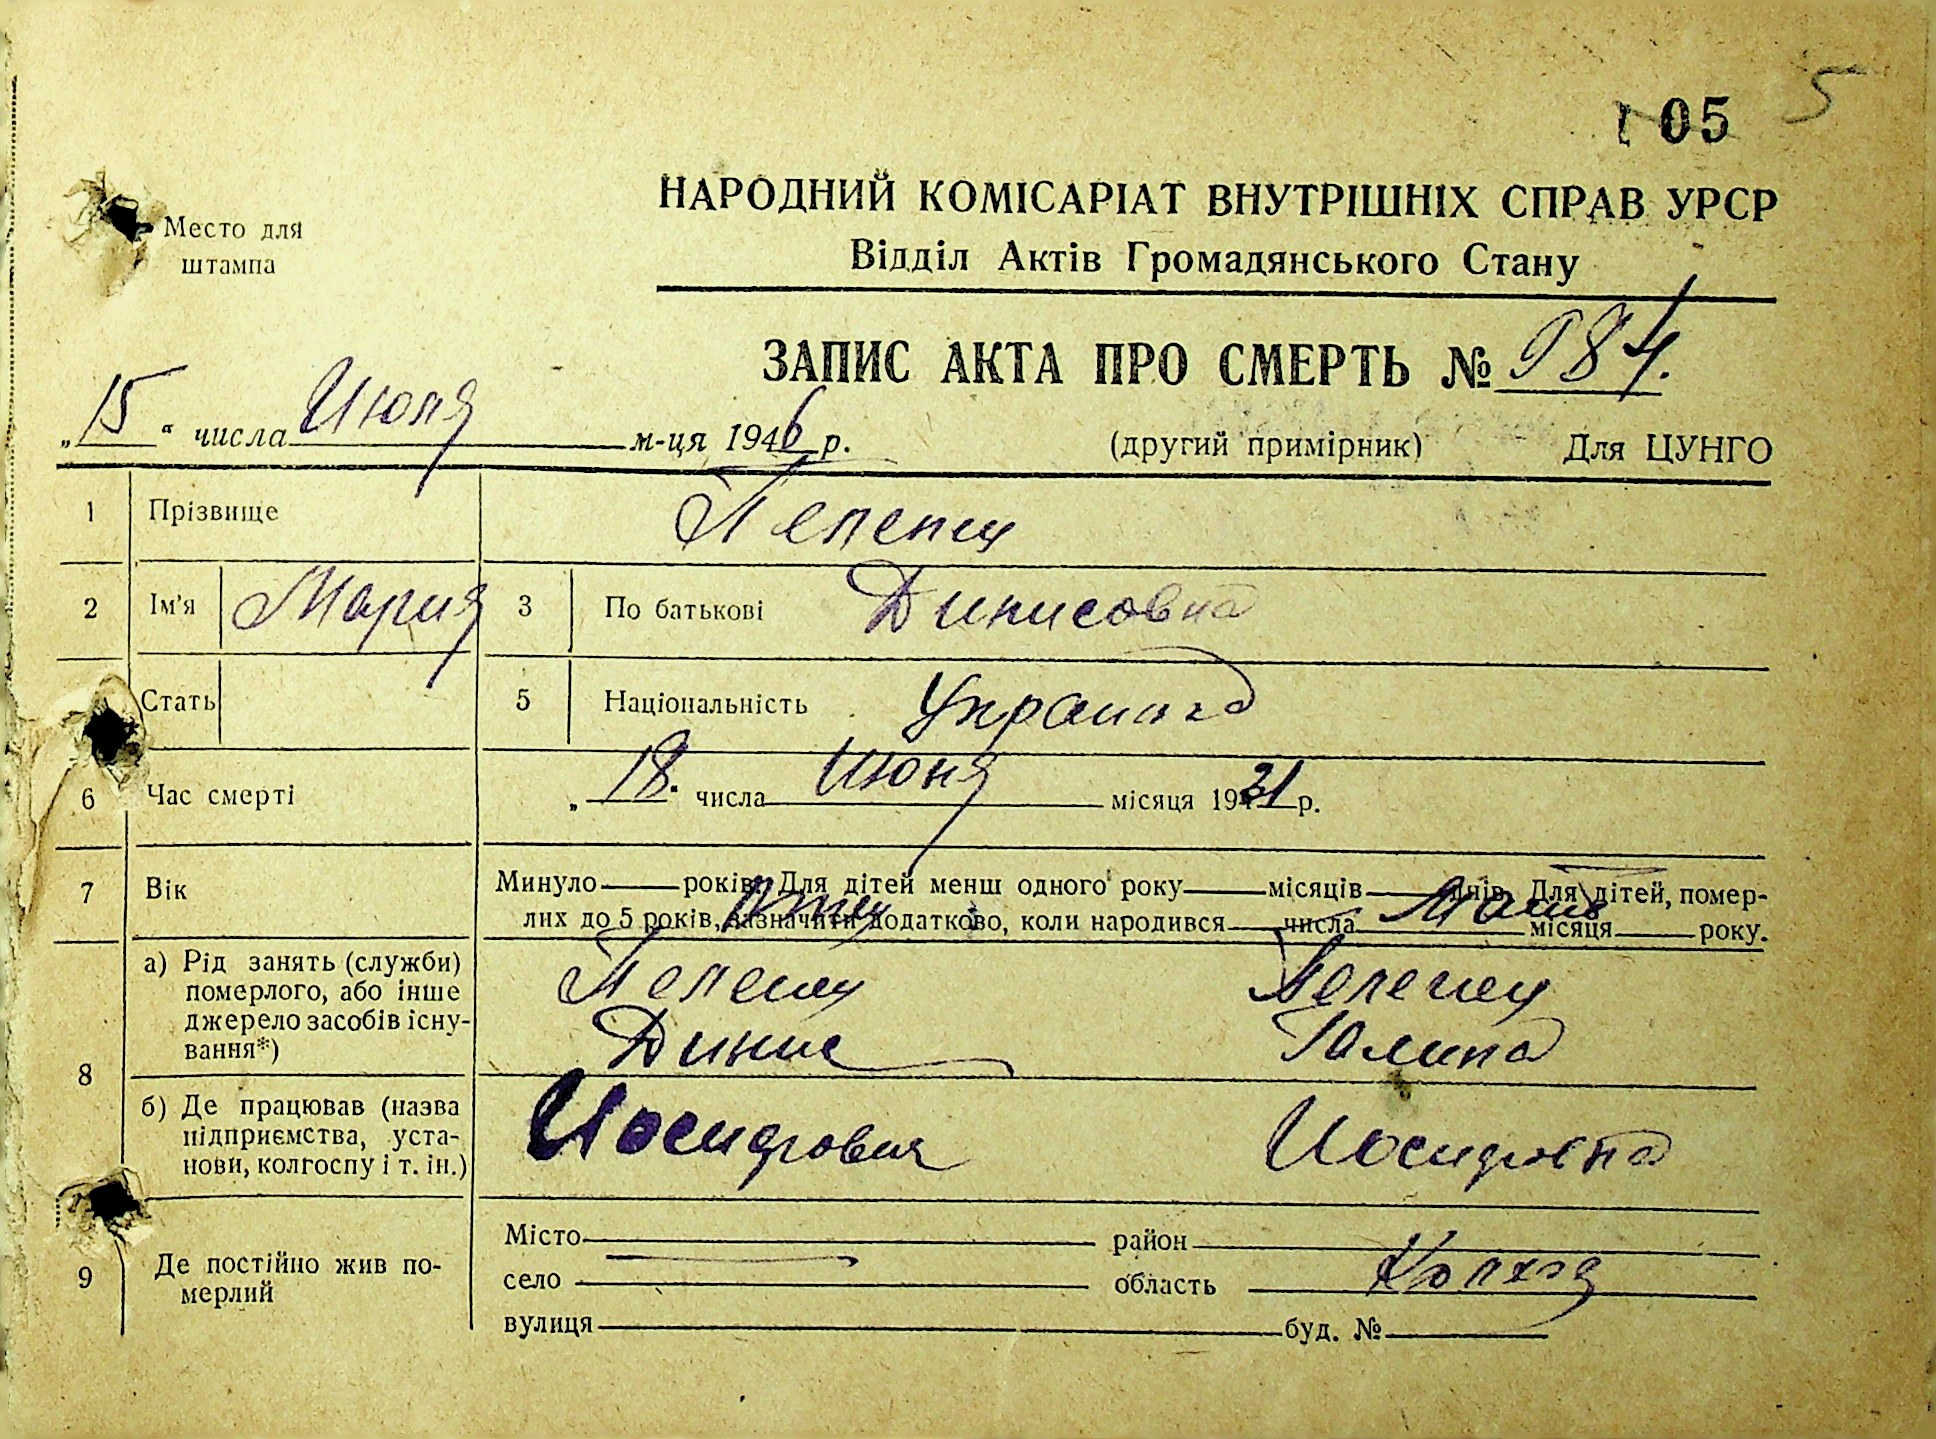 105 5
Место для
штампа
НАРОДНИЙ КОМІСАРІАТ ВНУТРІШНІХ СПРАВ УРСР
Відділ Актів Громадянського Стану
ЗАПИС АКТА ПРО СМЕРТЬ № 984.
„15“ числа Июля м-ця 1946 р. (другий примірник) Для ЦУНГО
1 Прізвище
2 Ім'я Мария 3 По батькові Динисовна
Стать 5 Національність Украинка
6 Час смерті „18. числа Июня місяця 1931 р.
7 Вік Минуло років. Для дітей менш одного року місяців днів. Для дітей, помер-
лих до 5 років, зазначити додатково, коли народився числа місяця року.
Отец Мать
8 а) Рід занять (служби)
померлого, або інше
джерело засобів існу-
вання*)
Динис Галина
б) Де працював (назва
підприємства, уста-
нови, колгоспу і т. ін.)
Иосифович Иосифовна
9 Де постійно жив по-
мерлий
Місто район
село область Колхоз
вулиця буд. №